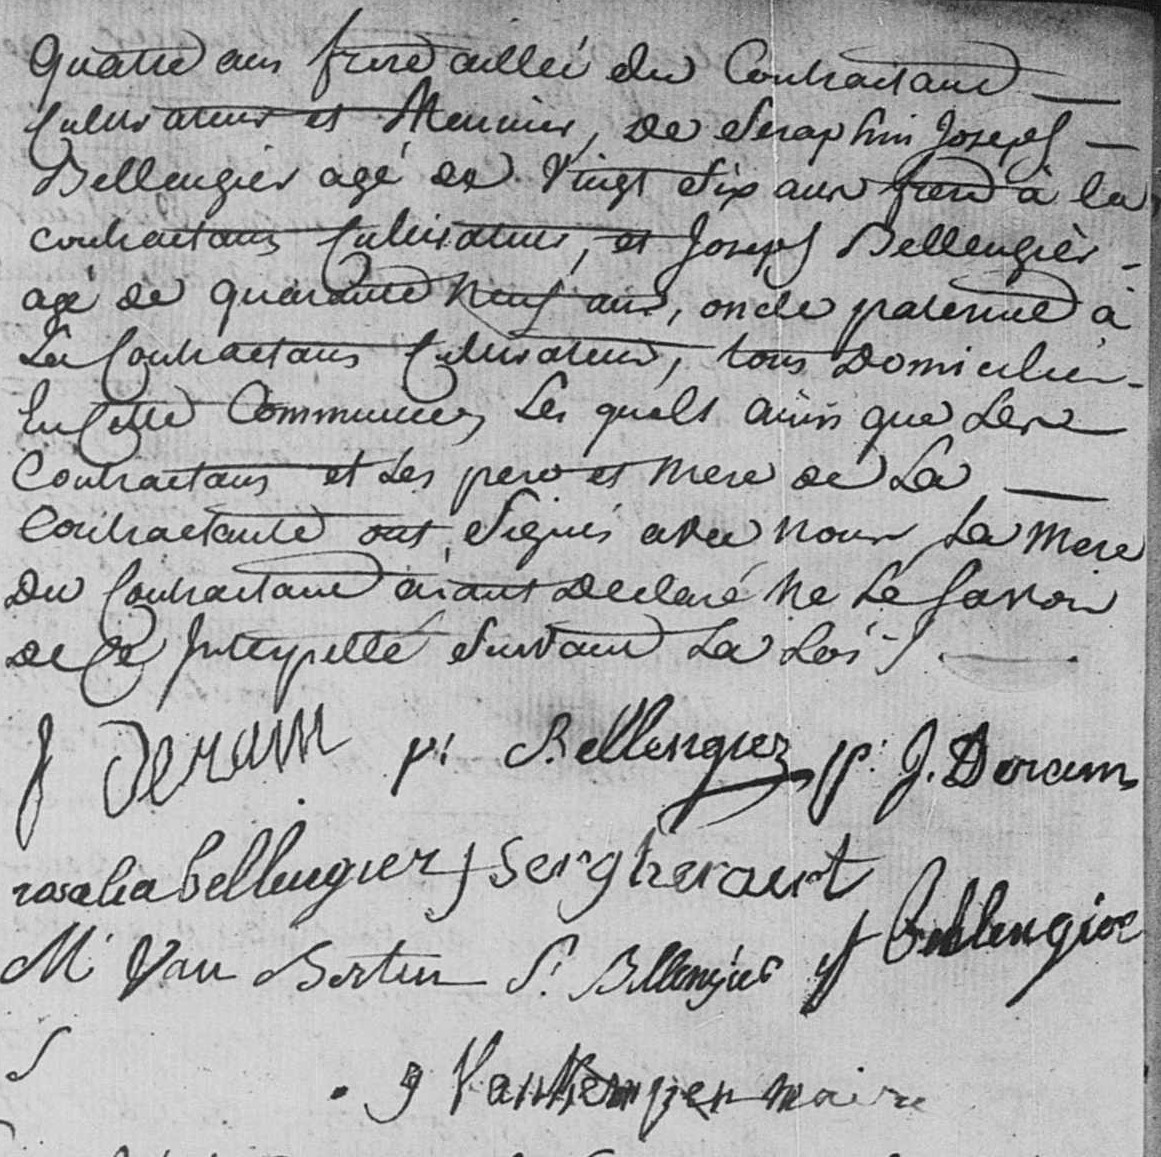 quatre ans frere ainé du Contractant
Cultivateur et Meunier, de Seraphin Joseph
Bellengier agé de Vingt Six ans frere à la
contractante Cultivateur, et Joseph Bellengier
agé de quarante Neuf ans, oncle paternel à
La Contractante Cultivateur, tous Domiciliés
En Cette Commune, Les quels ainsi que Les
Contractans et Les pere et Mere de La
Contractante ont Signés avec nous La Mere
Du Contractant aiant Declaré Ne Le Savoir
de Ce Interpellé Suivant La Loi
J Deram p: Bellenguez p: J. Deram
rosalia bellengier J Sergheraert
M Van B S: Bellengier J Bellengier
J Vankempen maire